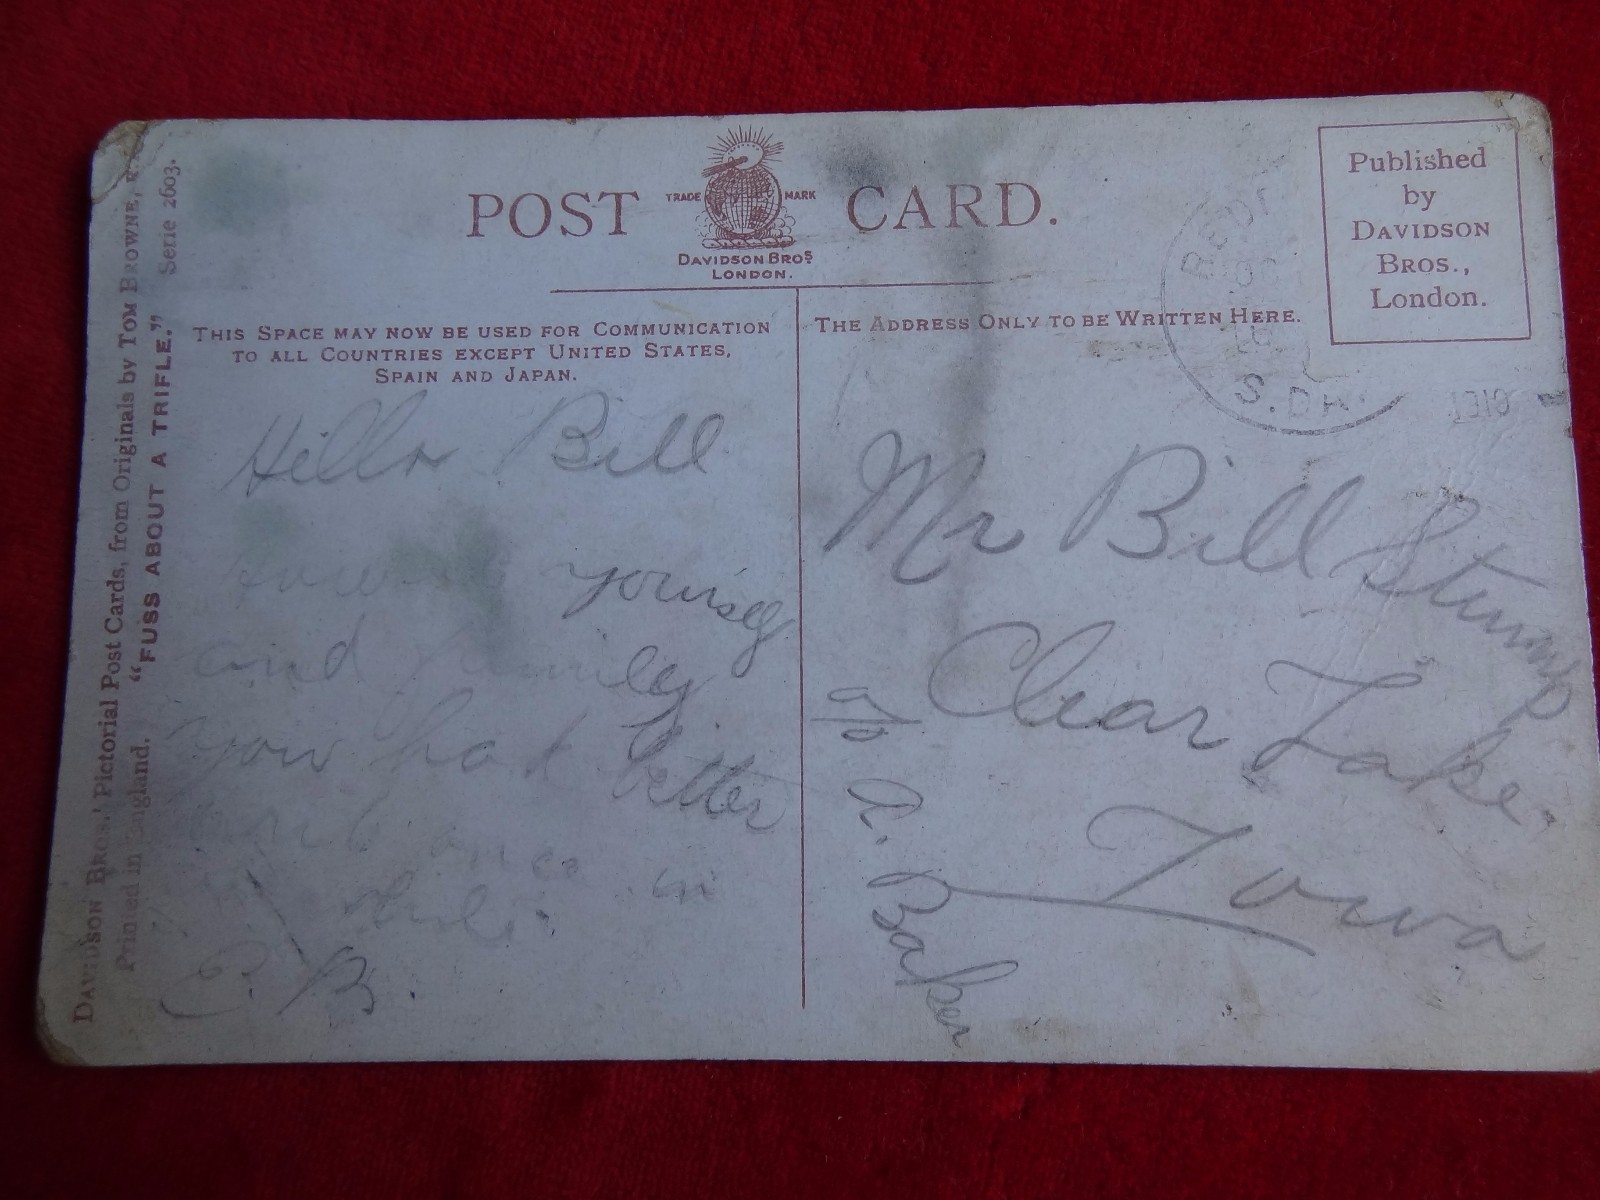 POST CARD.
TRADE MARK
DAVIDSON BROS
LONDON.
Published
by
DAVIDSON
BROS.,
London.
THIS SPACE MAY NOW BE USED FOR COMMUNICATION
TO ALL COUNTRIES EXCEPT UNITED STATES,
SPAIN AND JAPAN.
THE ADDRESS ONLY TO BE WRITTEN HERE.
S.DAK.
Hello Bill
yourself
and family
you had better
in
C. B.
Mr Bill Stump
Clear Lake.
Iowa
c/o A. Baker
DAVIDSON BROS.' Pictorial Post Cards, from Originals by TOM BROWNE,
Printed in England. "FUSS ABOUT A TRIFLE." Serie 2603.